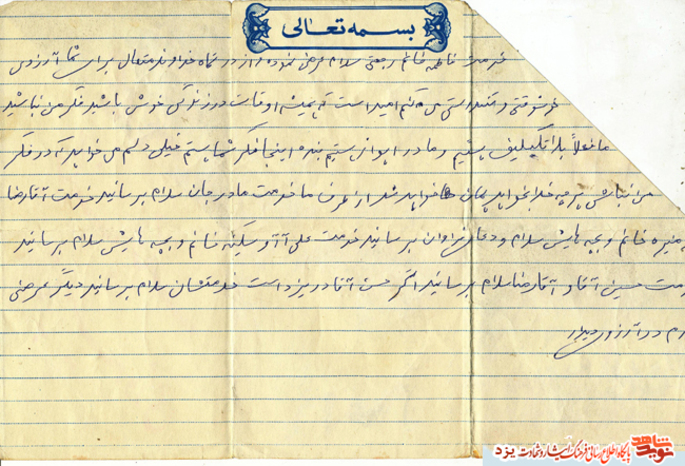 بسمه تعالی
خدمت فاطمه خانم رجعتی سلام عرض نموده و از درگاه خداوند متعال برای شما آرزوی
خوشوقتی و تندرستی می کنم امید است که همیشه اوقات در زندگی خوش باشید فکر من نباشید
ما فعلاً بلاتکلیف هستیم و ما در اهواز هستیم بنده اینجا فکر شما هستم خیلی دلم می خواهد که در فکر
من نباشی هر چه خدا بخواهد همان خواهد شد از طرف ما خدمت مادر جان سلام برسانید خدمت آقا رضا
منیره خانم و بچه هایش سلام و دعای فراوان برسانید خدمت علی آقا و سکینه خانم و بچه هایش سلام برسانید
خدمت حسین آقا و آقا رضا سلام برسانید اگر حسن آقا در یزد است خدمتشان سلام برسانید دیگر عرضی
ندارم در آرزوی دیدار
نوید شاهد
پایگاه اطلاع رسانی فرهنگ ایثار و شهادت یزد